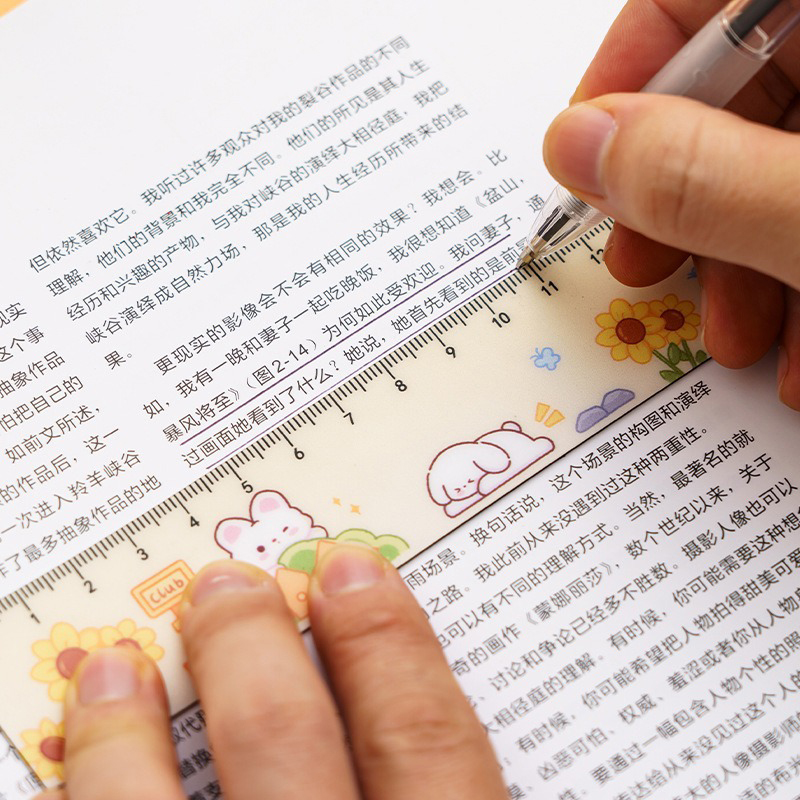 但依然喜欢它。我听过许多观众对我的裂谷作品的不同
理解,他们的背景和我完全不同。他们的所见是其人生
经历和兴趣的产物,与我对峡谷的演绎大相径庭,我把
峡谷演绎成自然力场,那是我的人生经历所带来的结
果。
更现实的影像会不会有相同的效果?我想会。比
如,我有一晚和妻子一起吃晚饭,我很想知道《盆山,
暴风将至》(图2-14)为何如此受欢迎。我问妻子,通
过画面她看到了什么?她说,她首先看到的是前
现实
这个事
抽象作品
怕把自己的
如前文所述,
的作品后,这一
一次进入羚羊峡谷
作了最多抽象作品的地
1 2 3 4 5 6 7 8 9 10 11 12
Club
这个场景的构图和演绎
雨场景。换句话说,我此前从来没遇到过这种两重性。
之路。当然,最著名的就
也可以有不同的理解方式。数个世纪以来,关于
奇的画作《蒙娜丽莎》,摄影人像也可以
、讨论和争论已经多不胜数。你可能需要这种想
大相径庭的理解。有时候,你可能希望把人物拍得甜美可爱
,有时候,羞涩或者你从人物
、凶恶可怕、权威、
性,要通过一幅包含人物个性的照
达给从来没见过这个人的
大的人像摄影师
的布光